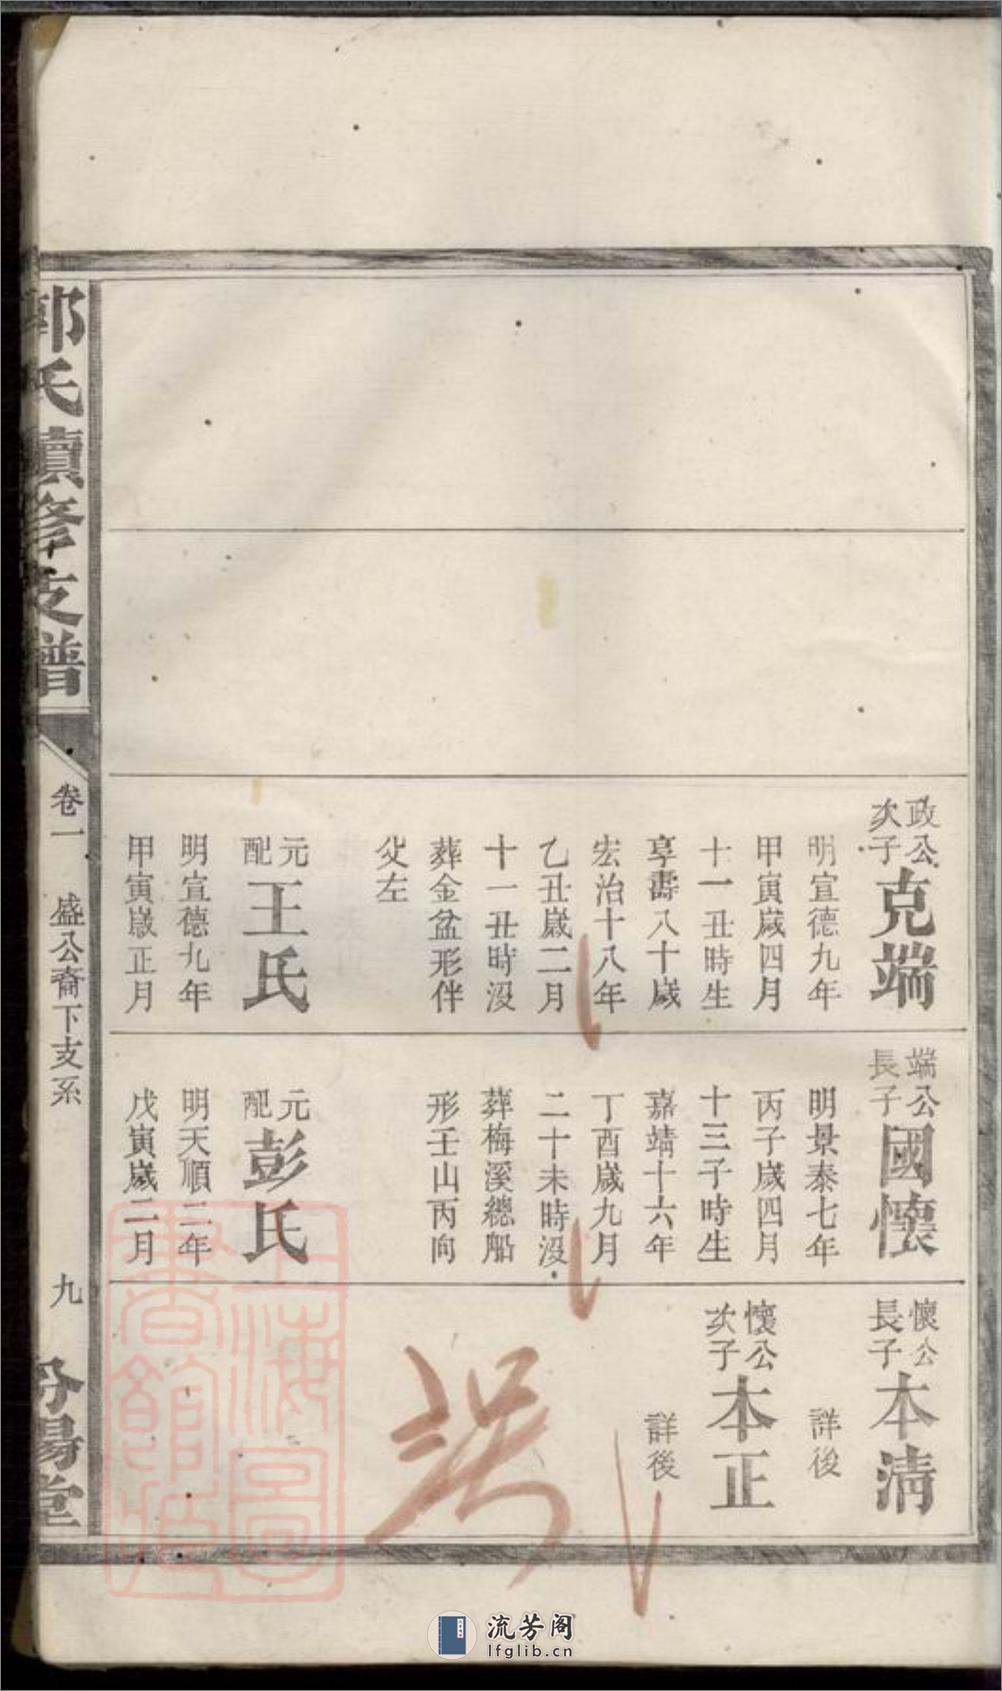 郭氏續修支譜
卷一
盛公裔下支系
九
汾陽堂
政公
次子
克端
明宣德九年
甲寅歲四月
十一丑時生
享壽八十歲
宏治十八年
乙丑歲二月
十一丑時沒
葬金盆形伴
父左
元
配
王氏
明宣德九年
甲寅歲正月
端公
長子
國懷
明景泰七年
丙子歲四月
十三子時生
嘉靖十六年
丁酉歲九月
二十未時沒
葬梅溪總船
形壬山丙向
元
配
彭氏
明天順二年
戊寅歲二月
懷公
長子
本清
詳後
懷公
次子
本正
詳後
上海圖
書館藏
流芳阁
lfglib.cn